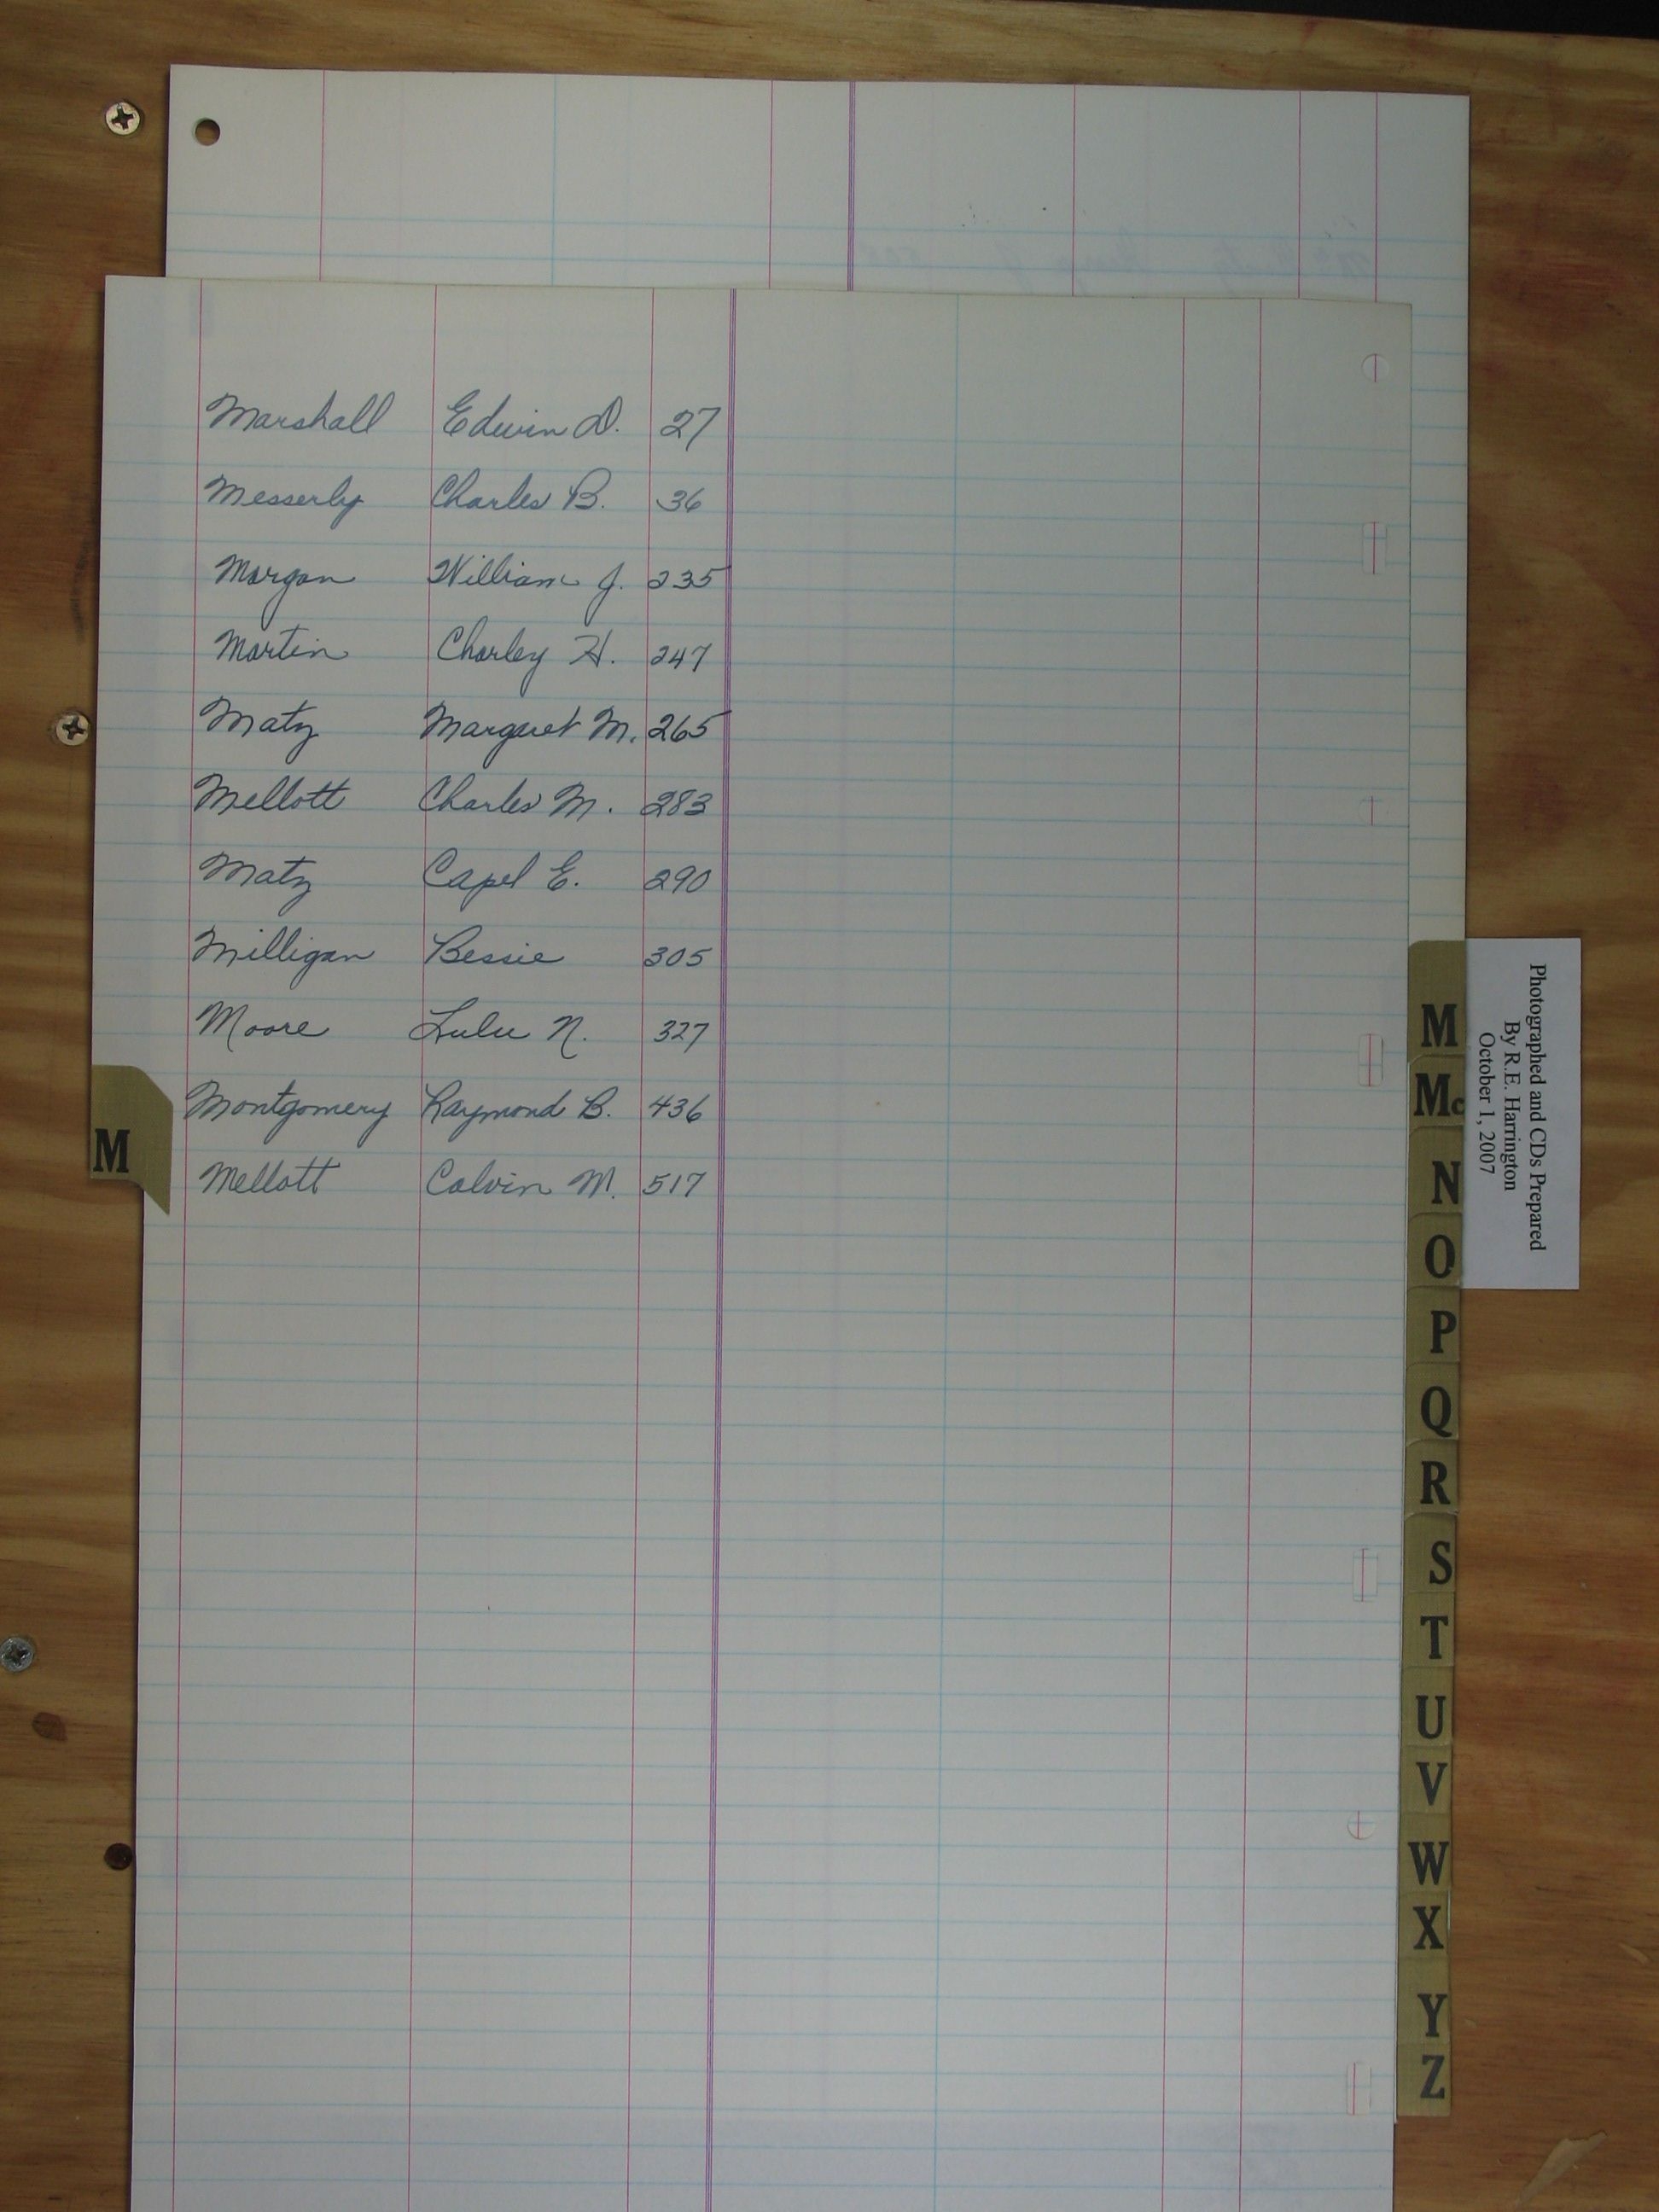 Marshall Edwin D. 27
Messerly Charles B. 36
Morgan William J. 235
Martin Charley H. 247
Matz Margaret M. 265
Mellott Charles M. 283
Matz Capel E. 290
Milligan Bessie 305
Moore Lulu N. 327
Montgomery Raymond B. 436
Mellott Calvin M. 517
M
M
Mc
N
O
P
Q
R
S
T
U
V
W
X
Y
Z
Photographed and CDs Prepared
By R.E. Harrington
October 1, 2007